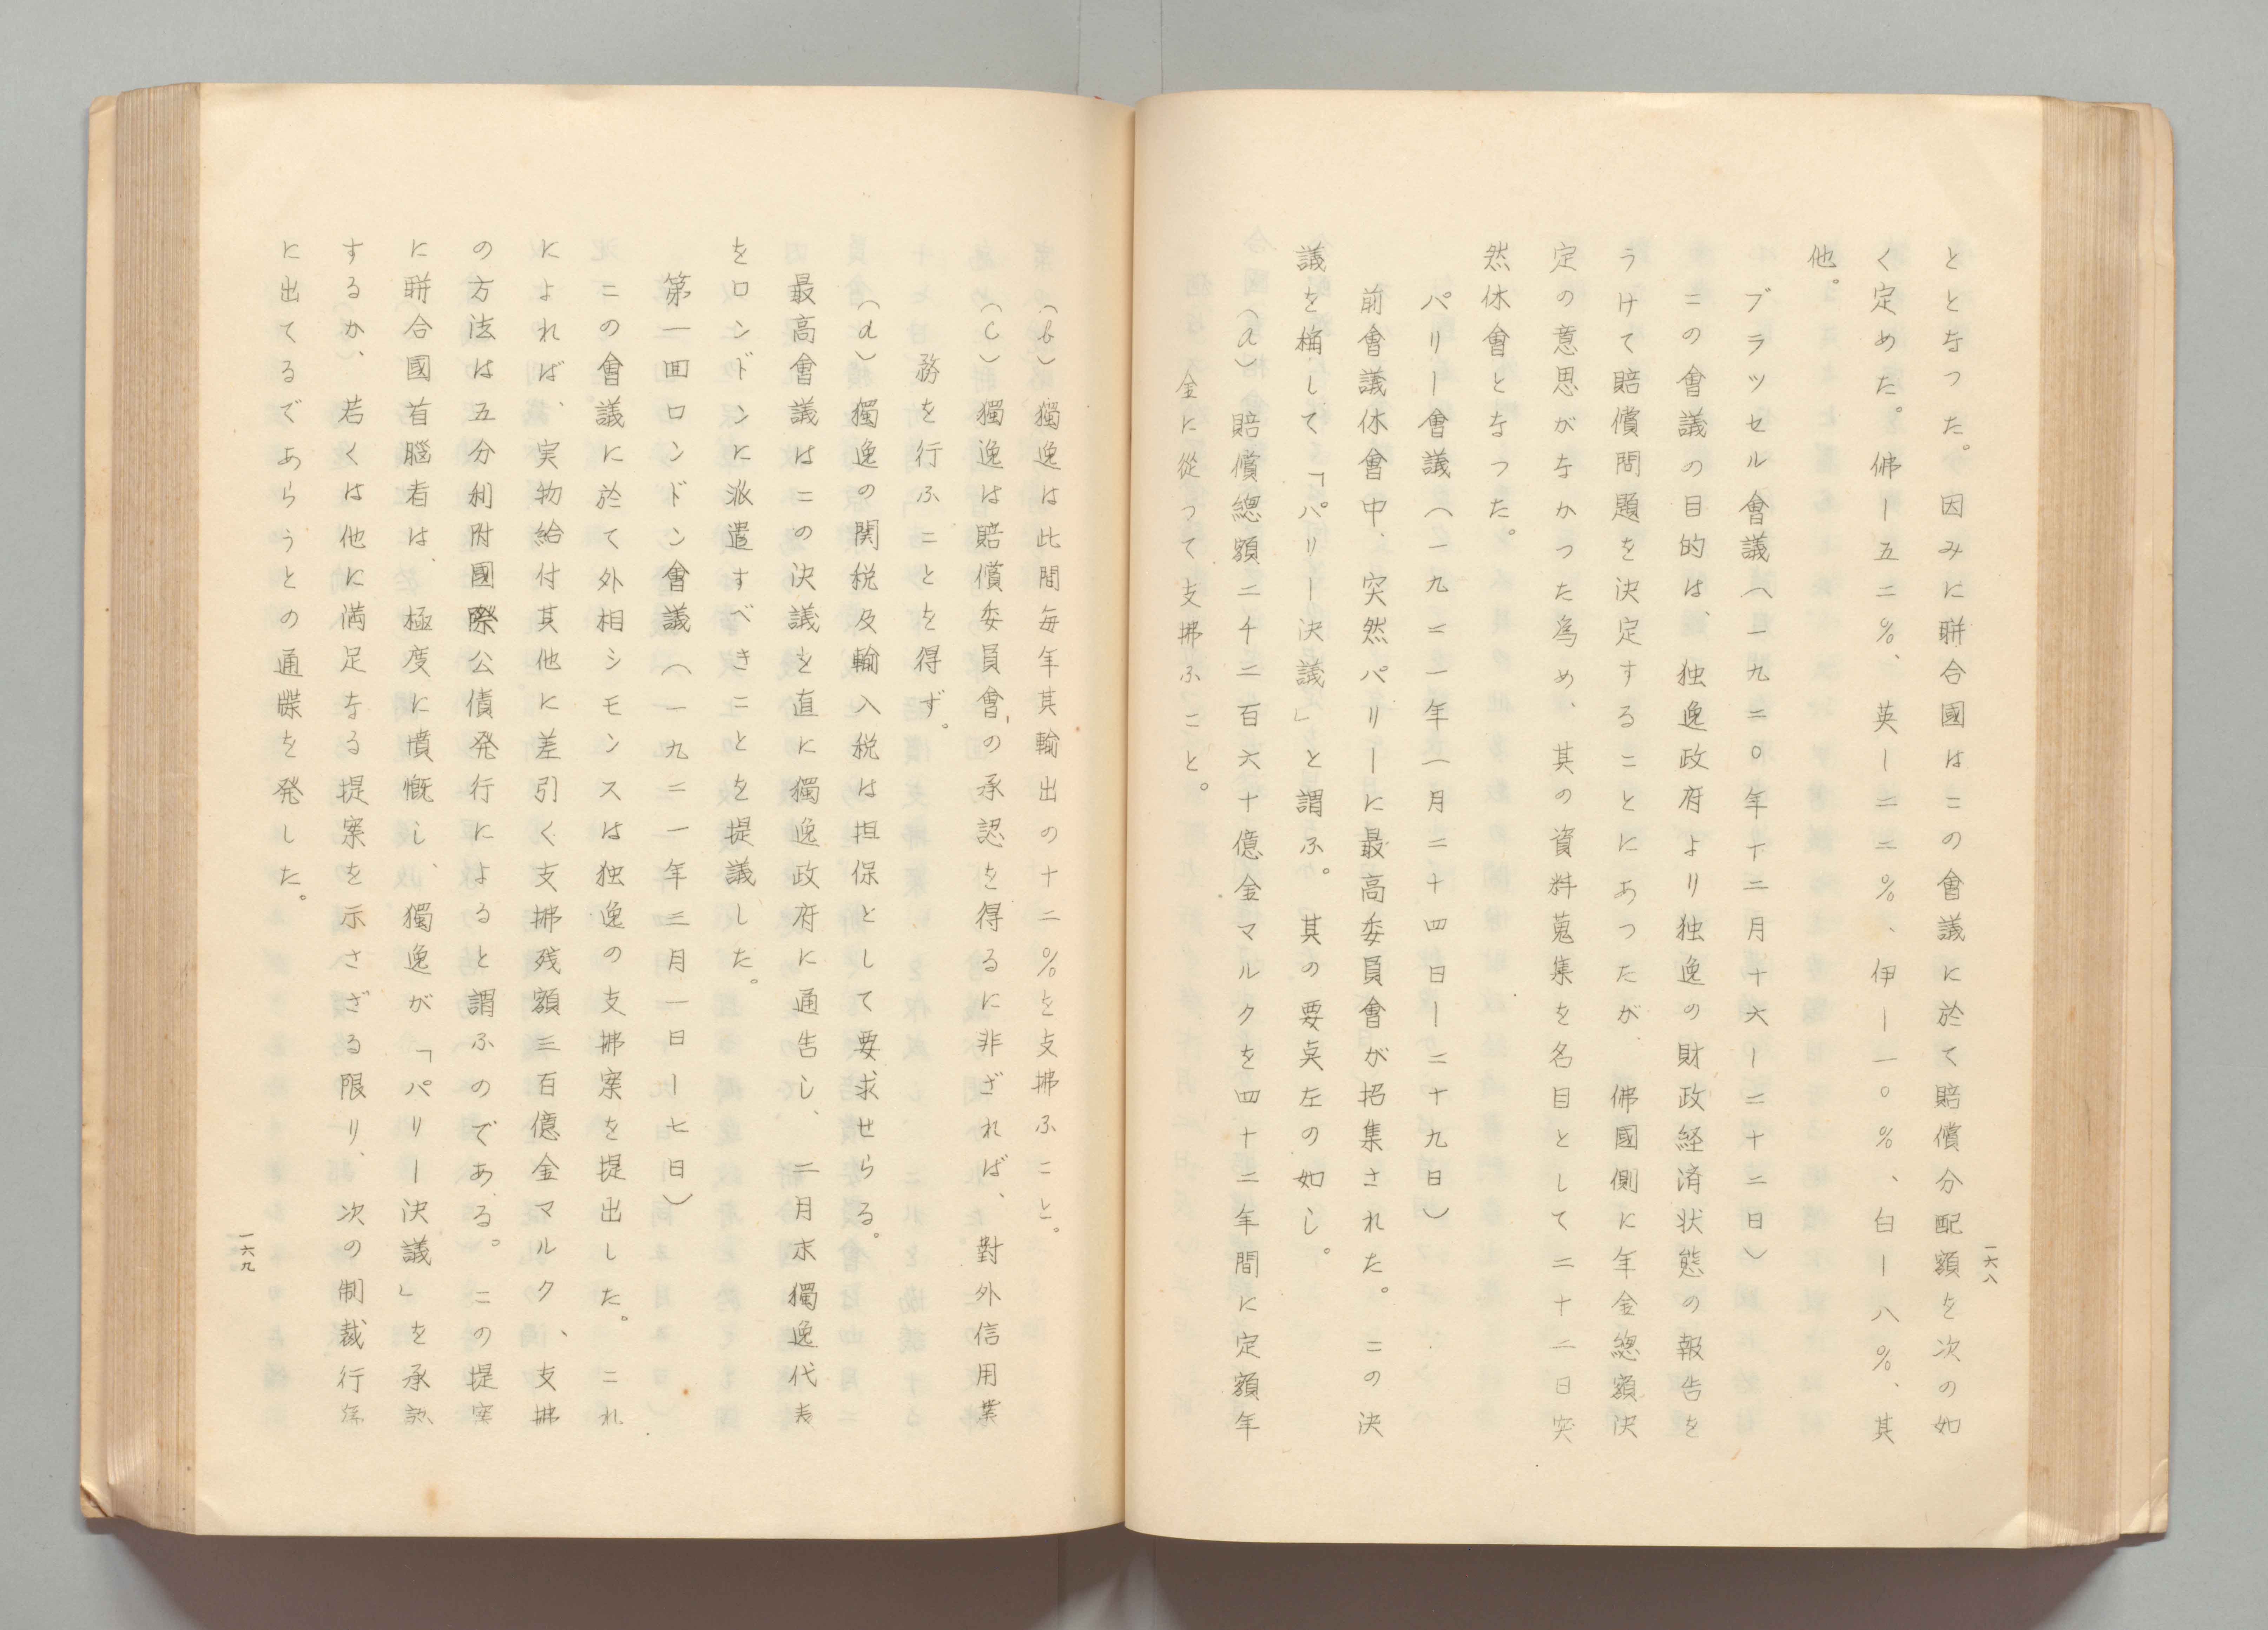 一六八
ととなつた。因みに聯合國はこの會議に於て賠償分配額を次の如
く定めた。佛ー五二％、英ー二二％、伊ー一〇％、白ー八％、其
他。
ブラッセル會議（一九二〇年十二月十六ー二十二日）
この會議の目的は、独逸政府より独逸の財政経済状態の報告を
うけて賠償問題を決定することにあつたが、佛國側に年金總額決
定の意思がなかつた為め、其の資料蒐集を名目として二十二日突
然休會となつた。
パリー會議（一九二一年一月二十四日ー二十九日）
前會議休會中、突然パリーに最高委員會が招集された。この決
議を稱して「パリー決議」と謂ふ。其の要点左の如し。
（a）賠償總額二千二百六十億金マルクを四十二年間に定額年
金に從つて支拂ふこと。
（b）獨逸は此間毎年其輸出の十二％を支拂ふこと。
（c）獨逸は賠償委員會の承認を得るに非ざれば、對外信用業
務を行ふことを得ず。
（d）獨逸の関税及輸入税は担保として要求せらる。
最高會議はこの決議を直に獨逸政府に通告し、二月末獨逸代表
をロンドンに派遣すべきことを提議した。
第一回ロンドン會議（一九二一年三月一日ー七日）
この會議に於て外相シモンスは独逸の支拂案を提出した。これ
によれば、実物給付其他に差引く支拂残額三百億金マルク、支拂
の方法は五分利附國際公債発行によると謂ふのである。この提案
に聯合國首脳者は、極度に憤慨し、獨逸が「パリー決議」を承認
するか、若くは他に満足なる提案を示さざる限り、次の制裁行為
に出てるであらうとの通牒を発した。
一六九